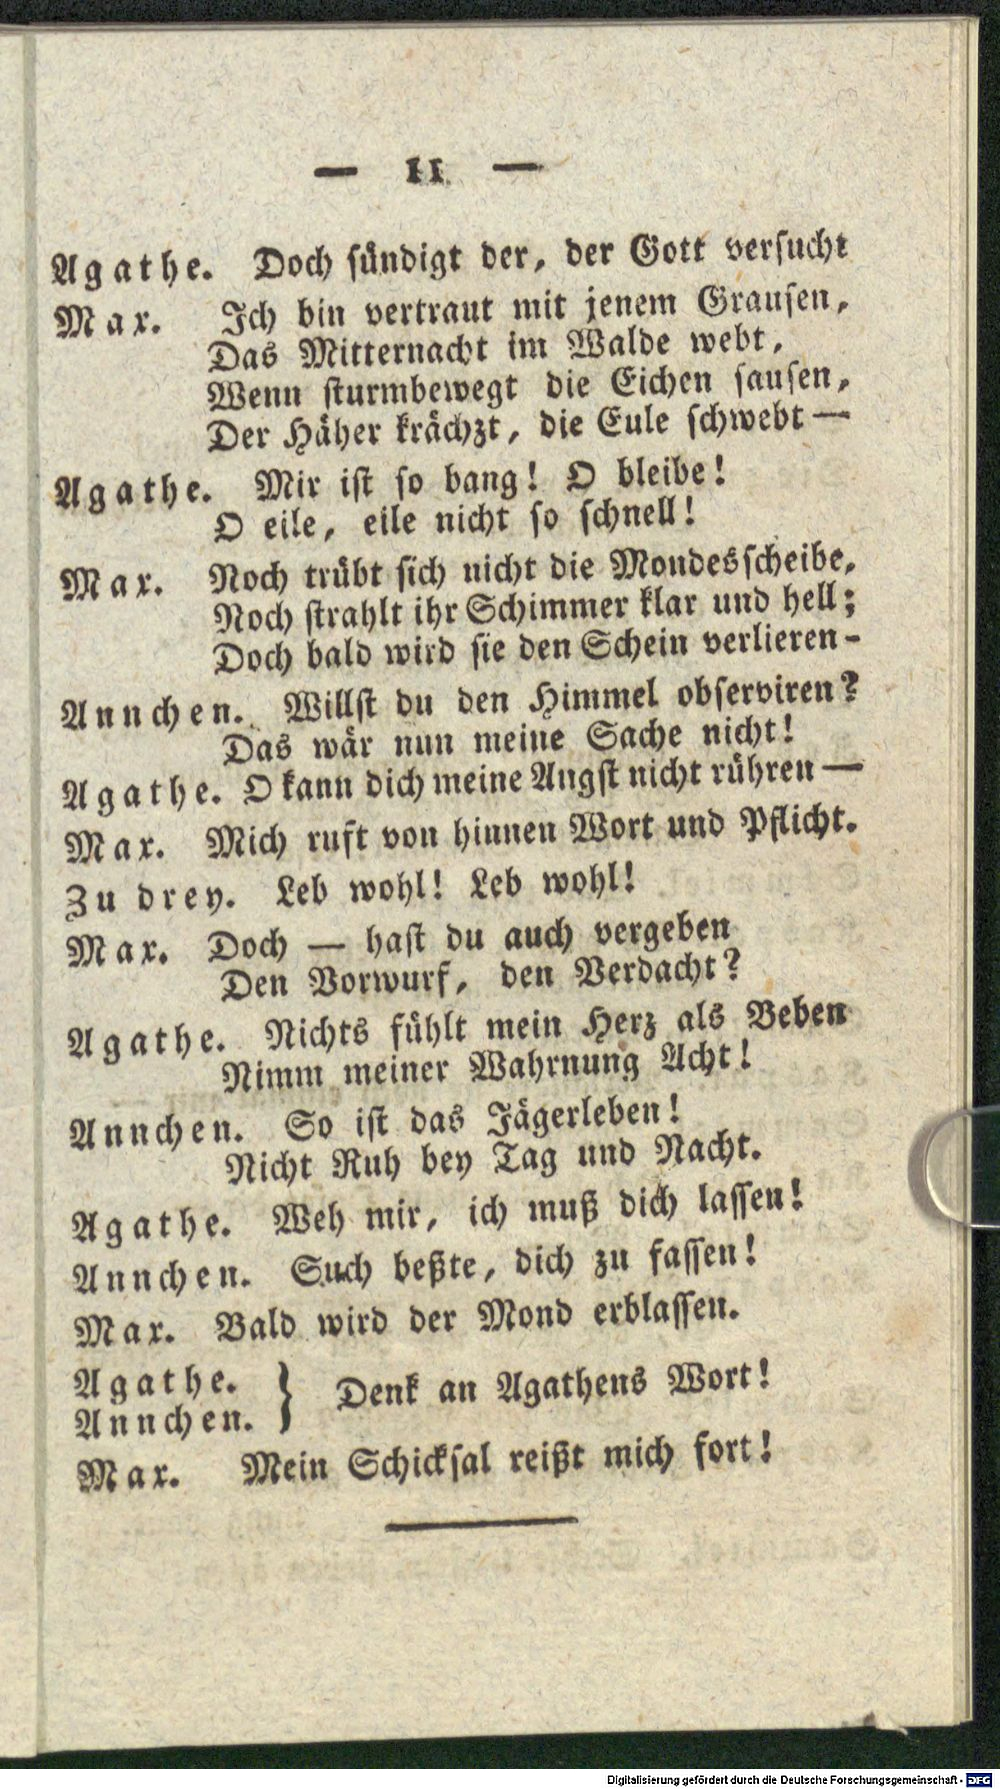 — 11 —
Agathe. Doch sündigt der, der Gott versucht
Max. Ich bin vertraut mit jenem Grausen,
Das Mitternacht im Walde webt,
Wenn sturmbewegt die Eichen sausen,
Der Häher krächzt, die Eule schwebt —
Agathe. Mir ist so bang! O bleibe!
O eile, eile nicht so schnell!
Max. Noch trübt sich nicht die Mondesscheibe,
Noch strahlt ihr Schimmer klar und hell;
Doch bald wird sie den Schein verlieren-
Annchen. Willst du den Himmel observiren?
Das wär nun meine Sache nicht!
Agathe. O kann dich meine Angst nicht rühren —
Max. Mich ruft von hinnen Wort und Pflicht.
Zu drey. Leb wohl! Leb wohl!
Max. Doch — hast du auch vergeben
Den Vorwurf, den Verdacht?
Agathe. Nichts fühlt mein Herz als Beben
Nimm meiner Wahrnung Acht!
Annchen. So ist das Jägerleben!
Nicht Ruh bey Tag und Nacht.
Agathe. Weh mir, ich muß dich lassen!
Annchen. Such beßte, dich zu fassen!
Max. Bald wird der Mond erblassen.
Agathe.
Annchen. } Denk an Agathens Wort!
Max. Mein Schicksal reißt mich fort!
Digitalisierung gefördert durch die Deutsche Forschungsgemeinschaft - DFG